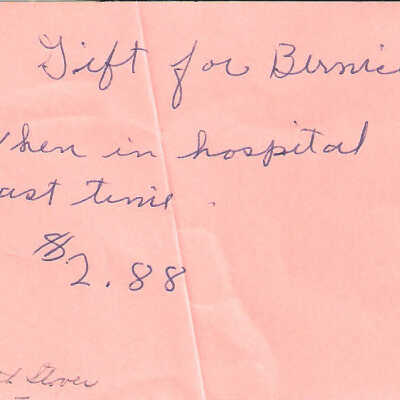 Gift for Bernic
when in hospital
ast time.
$2.88
Stover